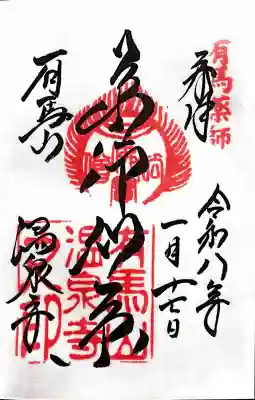 有馬薬師
奉拝
令和八年
一月十七日
薬師如来
有馬山
温泉寺
有馬山
温泉寺
之印